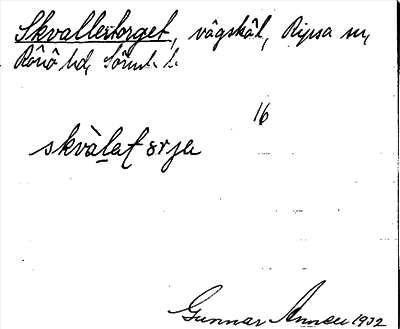 Skvallertorget, vägskäl, Ripsa sn,
Rönö hd, Sörml. l.
16
Gunnar 1932